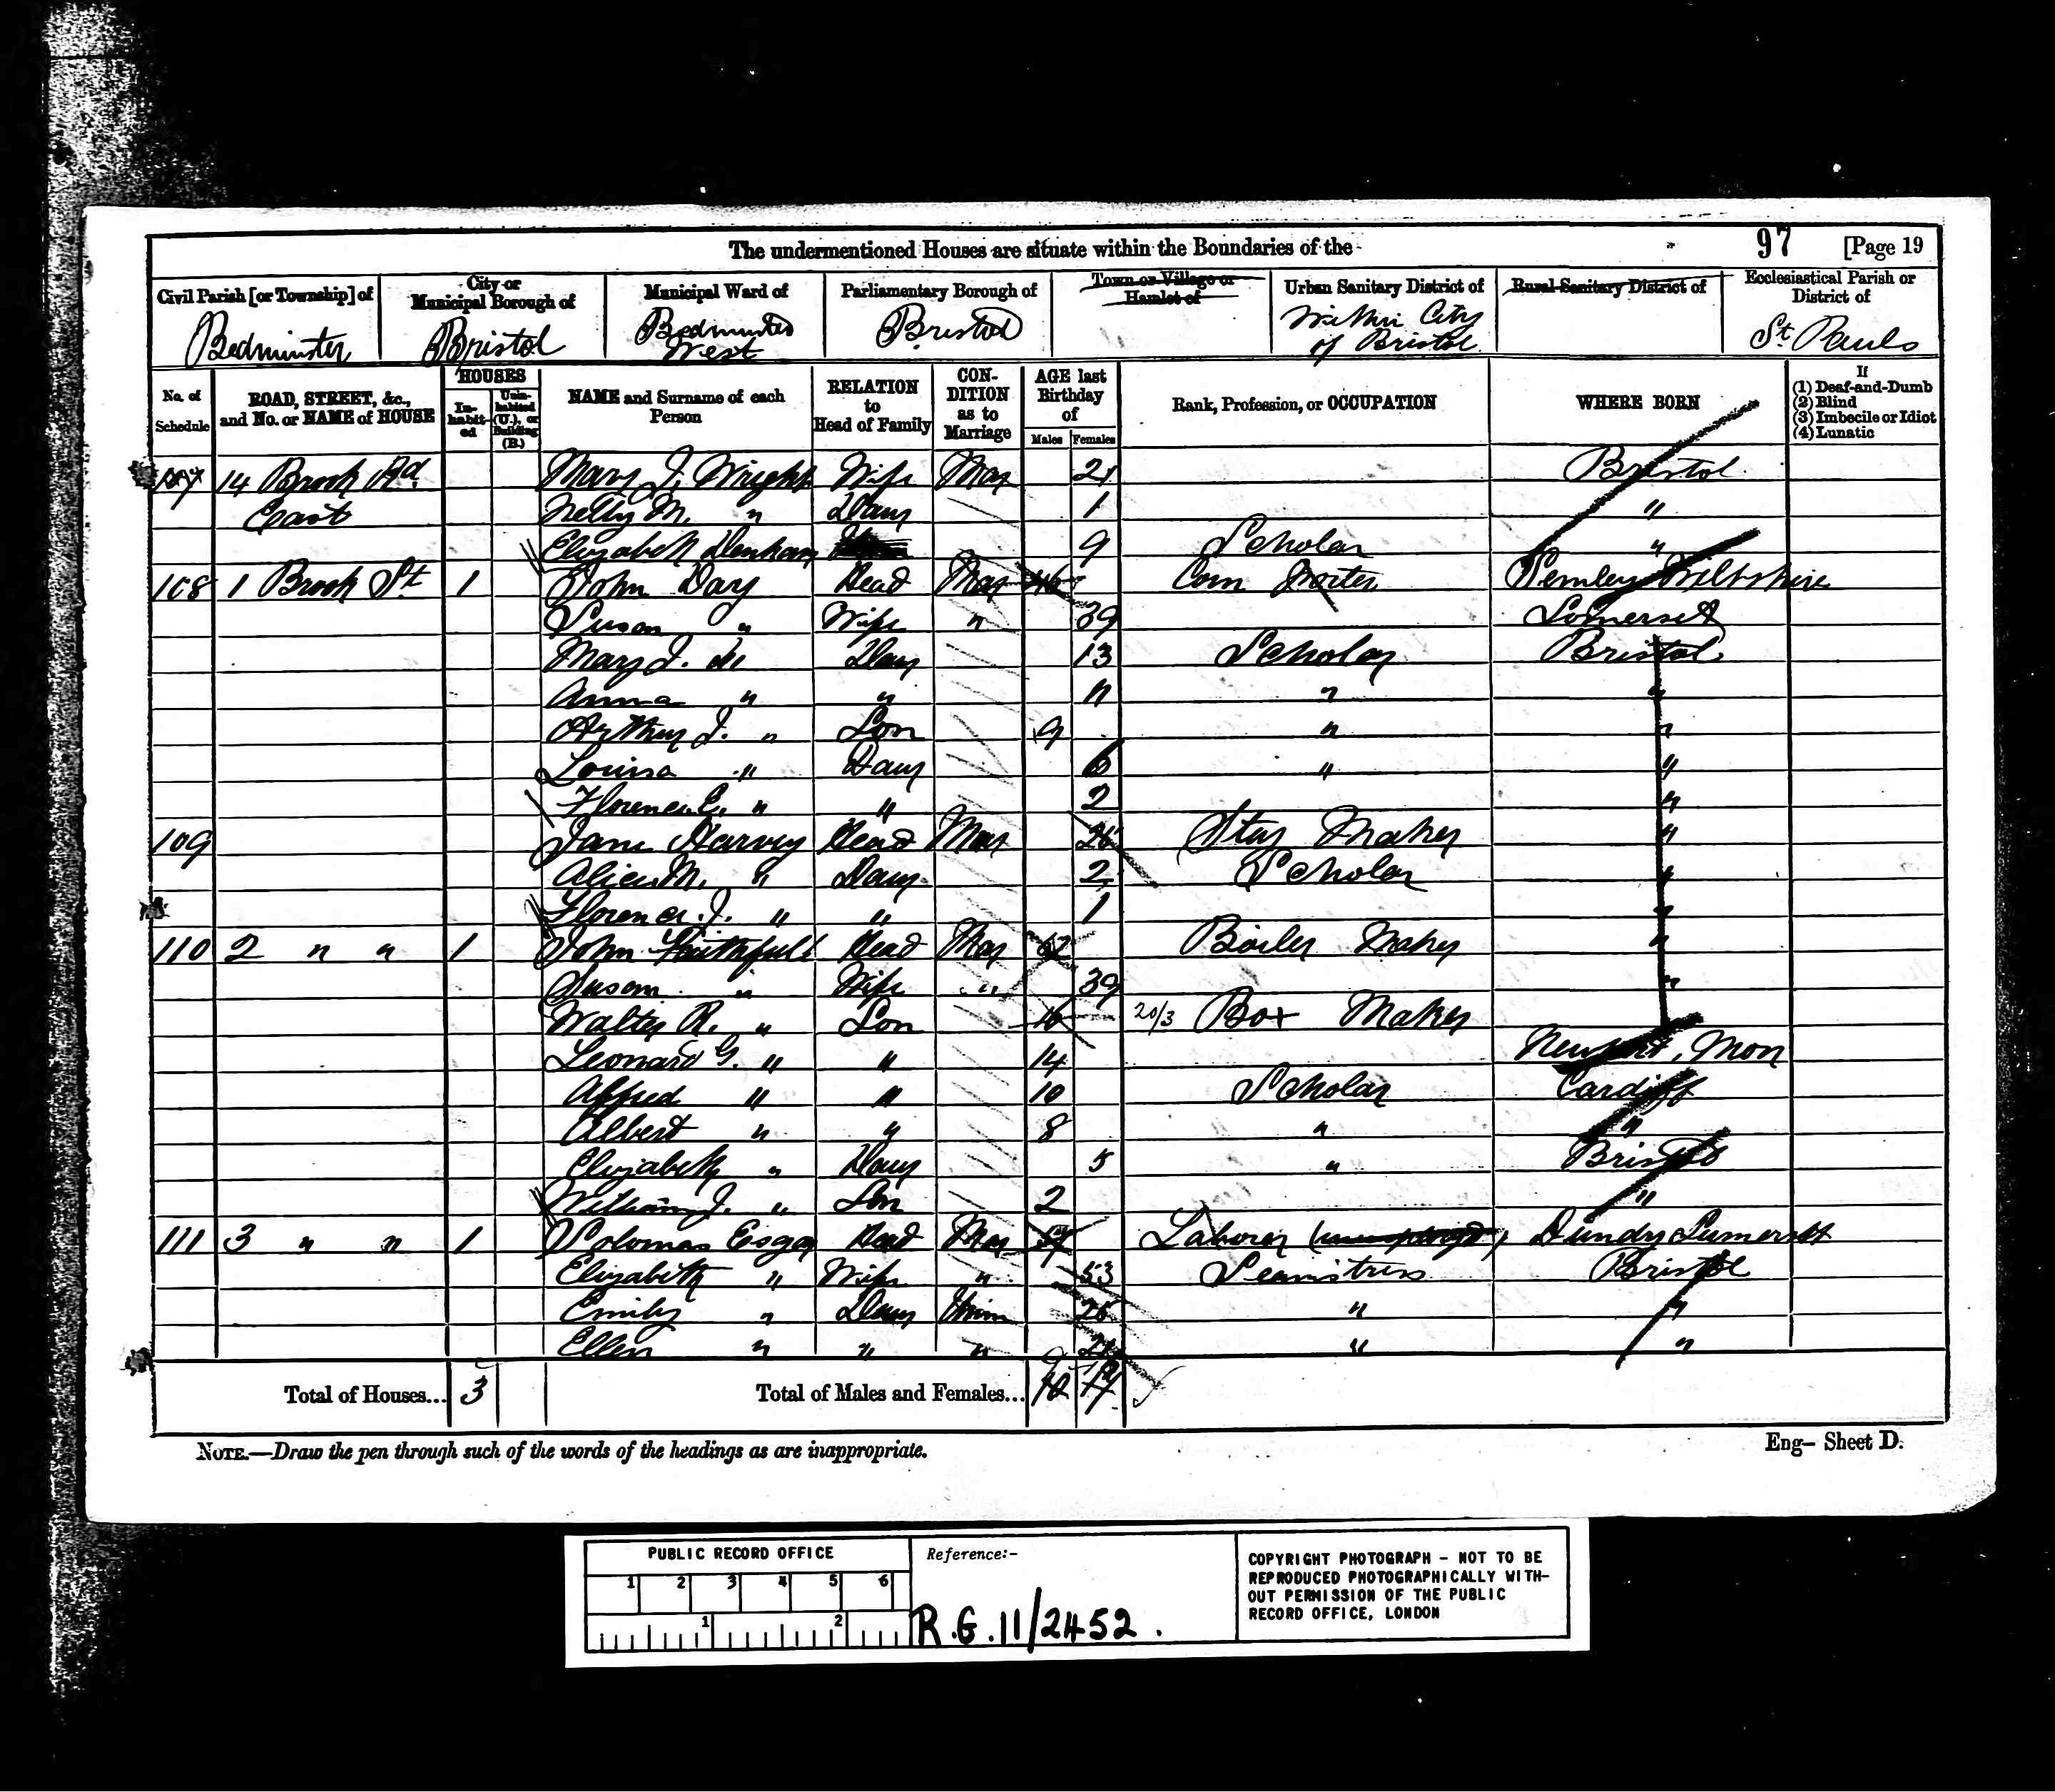 The undermentioned Houses are situate within the Boundaries of the
97 [Page 19
Civil Parish [or Township] of
Bedminster
City or Municipal Borough of
Bristol
Municipal Ward of
Bedminster West
Parliamentary Borough of
Bristol
Town or Village or Hamlet of
Urban Sanitary District of
Within City of Bristol
Rural Sanitary District of
Ecclesiastical Parish or District of
St Pauls
No. of Schedule
ROAD, STREET, &c., and No. or NAME of HOUSE
HOUSES
Inhabited
Uninhabited (U.), or Building (B.)
NAME and Surname of each Person
RELATION to Head of Family
CONDITION as to Marriage
AGE last Birthday of
Males Females
Rank, Profession, or OCCUPATION
WHERE BORN
If
(1) Deaf-and-Dumb
(2) Blind
(3) Imbecile or Idiot
(4) Lunatic
107 14 Brook Rd Mary J. Wright Wife Mar 21 Bristol
East Nelly M. " Daur 1 "
Elizabeth Denham 9 Scholar "
108 1 Brook St 1 John Day Head Mar 46 Corn Porter Semley Wiltshire
Susan " Wife " 39 Somerset
Mary J. Do Daur 13 Scholar Bristol
Anna " " 11 " "
Arthur J. " Son 9 " "
Louisa " Daur 6 " "
Florence E. " " 2 "
109 Jane Harvey Head Mar 26 Stay Maker "
Alice M. " Daur 2 Scholar "
Florence J. " " 1 "
110 2 " " 1 John Faithfull Head Mar 42 Boiler Maker "
Susan " Wife " 39 "
Walter R. " Son 16 20/3 Box Maker "
Leonard G. " " 14 Newport, Mon
Alfred " " 10 Scholar Cardiff
Albert " " 8 " "
Elizabeth " Daur 5 " Bristol
William J. " Son 2 "
111 3 " " 1 Solomon Esgar Head Mar 57 Laborer (unemployed) Dundry Sumerset
Elizabeth " Wife " 53 Seamstress Bristol
Emily " Daur Unm 26 " "
Ellen " " " " "
Total of Houses... 3 Total of Males and Females...
NOTE.—Draw the pen through such of the words of the headings as are inappropriate.
Eng— Sheet D.
PUBLIC RECORD OFFICE
1 2 3 4 5 6
1 2
Reference:-
R.G.11/2452.
COPYRIGHT PHOTOGRAPH - NOT TO BE
REPRODUCED PHOTOGRAPHICALLY WITH-
OUT PERMISSION OF THE PUBLIC
RECORD OFFICE, LONDON